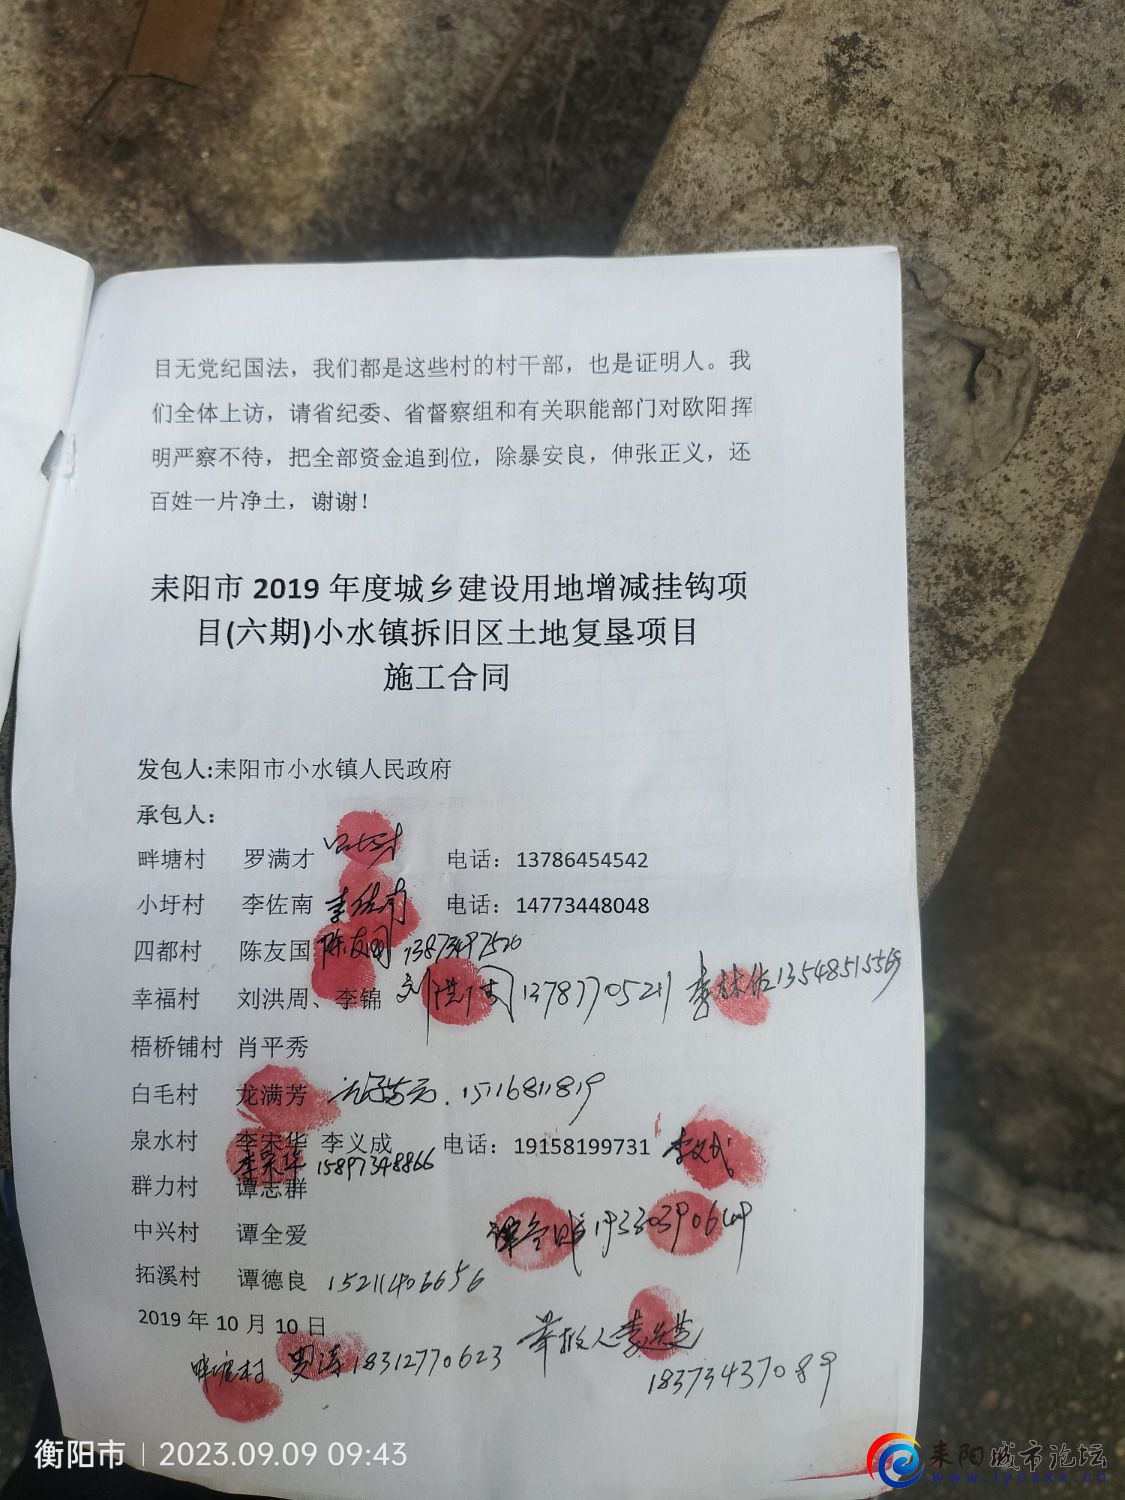 目无党纪国法，我们都是这些村的村干部，也是证明人。我
们全体上访，请省纪委、省督察组和有关职能部门对欧阳挥
明严察不待，把全部资金追到位，除暴安良，伸张正义，还
百姓一片净土，谢谢！
耒阳市 2019 年度城乡建设用地增减挂钩项
目(六期)小水镇拆旧区土地复垦项目
施工合同
发包人:耒阳市小水镇人民政府
承包人：
畔塘村 罗满才 电话：13786454542
小圩村 李佐南 李佐南 电话：14773448048
四都村 陈友国 陈友国 13873497520
幸福村 刘洪周、李锦 刘洪周 13787705211 李林佑 13548515569
梧桥铺村 肖平秀
白毛村 龙满芳 15116811819
泉水村 李宋华 李义成 电话：19158199731 李义成
李宋华 15897348866
群力村 谭志群
中兴村 谭全爱
拓溪村 谭德良 15211406656
2019 年 10 月 10 日
畔塘村 罗涛 18312770623 举报人
18373437089
衡阳市 2023.09.09 09:43
耒阳城市论坛
www.lycskx.cn